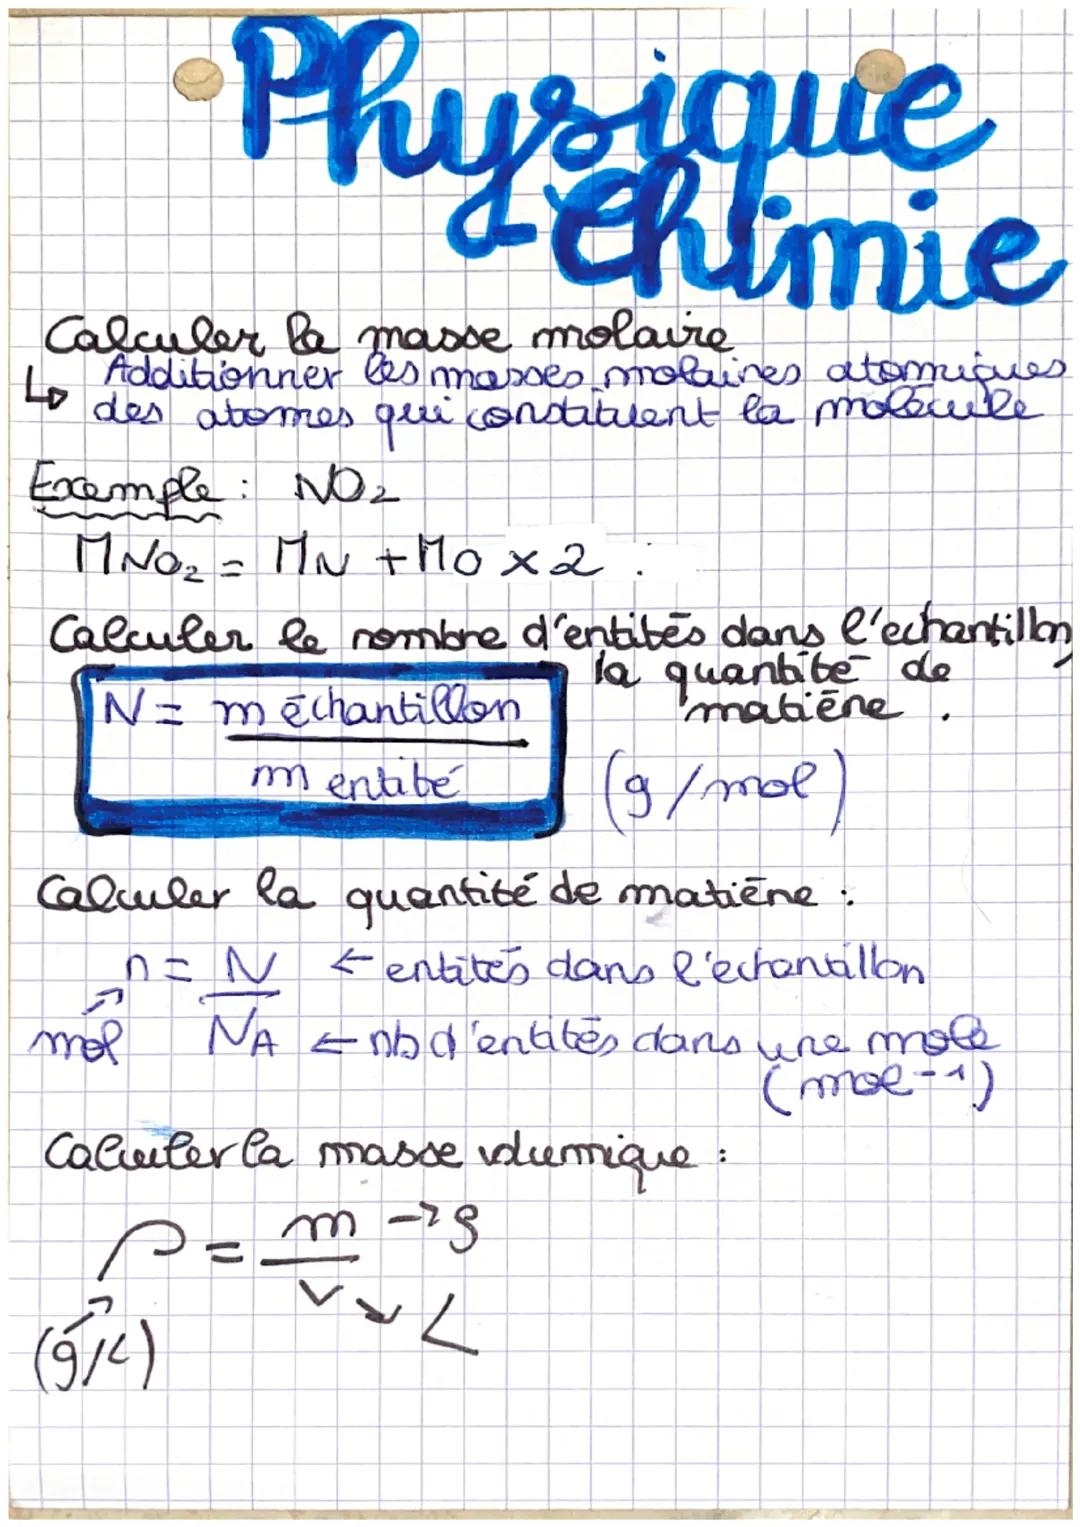 Physique
Chimie
Calculer la masse molaire
↳ Additionner les masses molaires atomiques
des atomes qui constituent la molécule
Exemple : NO₂
MNO₂ = MN + MO x 2 .
Calculer le nombre d'entités dans l'echantillon,
la quantité de
matière .
N = m échantillon
m entité
(g/mol)
Calculer la quantité de matière :
n = N ← entités dans l'echantillon
mol NA ← nb d'entités dans une mole
(mol-¹)
Calculer la masse volumique :
ρ = m → g
v ↘ L
(g/L)